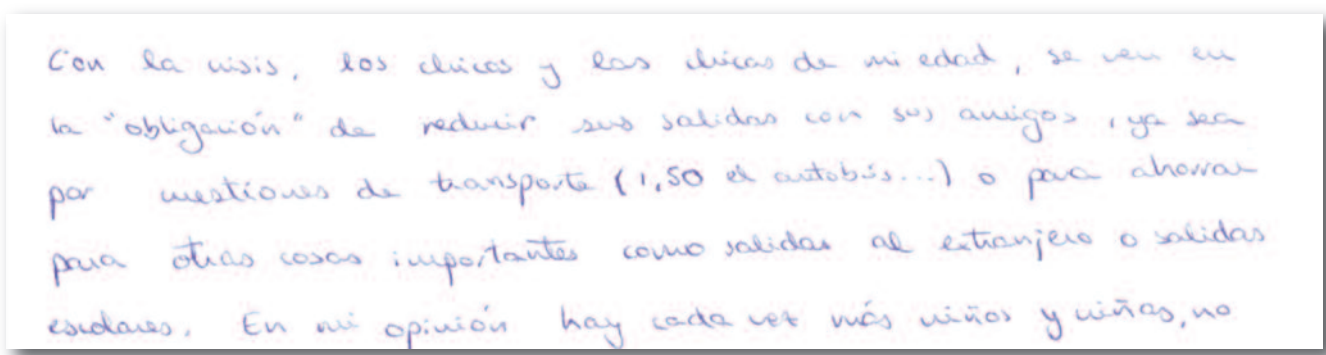 Con la crisis, los chicos y las chicas de mi edad, se ven en
la "obligación" de reducir sus salidas con sus amigos, ya sea
por cuestiones de transporte (1,50 el autobús...) o para ahorrar
para otras cosas importantes como salidas al extranjero o salidas
escolares. En mi opinión hay cada vez más niños y niñas, no